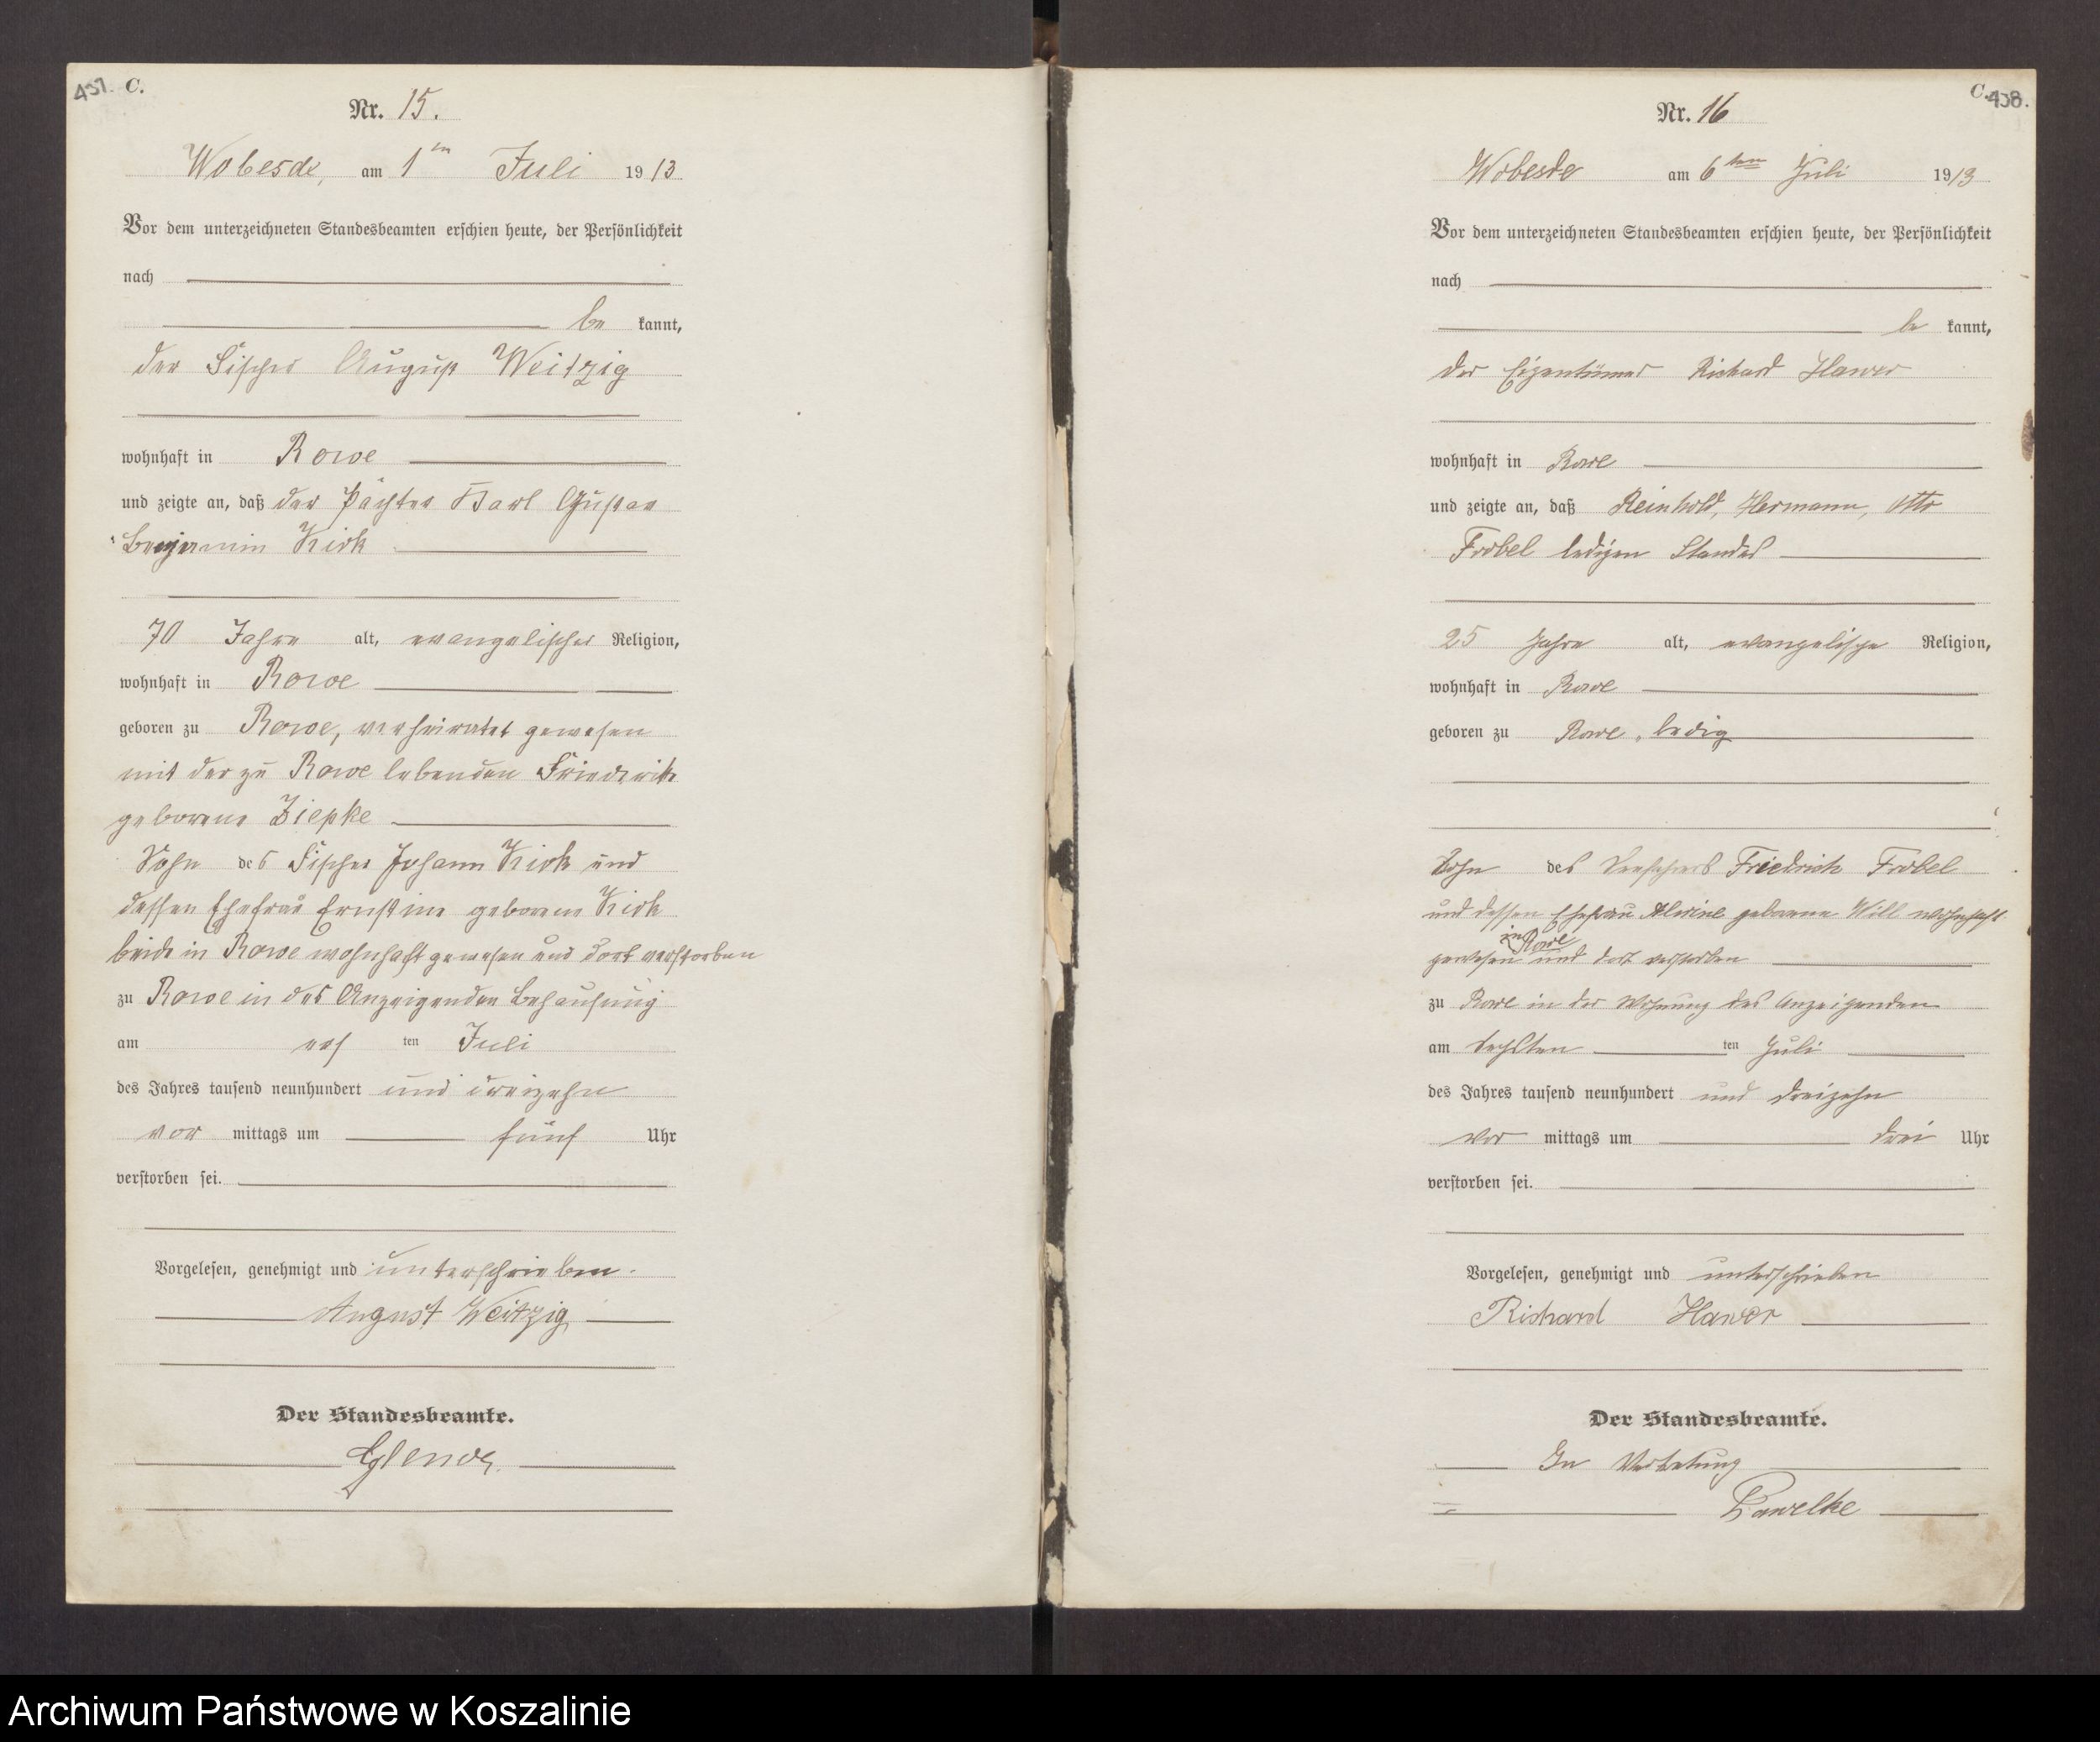 437. C.
Nr. 15.
Wobesde, am 1ten Juli 1913
Vor dem unterzeichneten Standesbeamten erschien heute, der Persönlichkeit
nach
be kannt,
der Fischer August Weitzig
wohnhaft in Rowe
und zeigte an, daß der Pächter Karl Gustav
Benjamin Kirk
70 Jahre alt, evangelischer Religion,
wohnhaft in Rowe
geboren zu Rowe, verheiratet gewesen
mit der zu Rowe lebenden Friederike
geborene Ziepke
Sohn des Fischer Johann Kirk und
dessen Ehefrau Ernstine geborene Kirk
beide in Rowe wohnhaft gewesen und dort verstorben
zu Rowe in des Anzeigenden Behausung
am ers ten Juli
des Jahres tausend neunhundert und dreizehn
vor mittags um fünf Uhr
verstorben sei.
Vorgelesen, genehmigt und unterschrieben.
August Weitzig
Der Standesbeamte.
C. 438.
Nr. 16
Wobesde am 6ten Juli 1913
Vor dem unterzeichneten Standesbeamten erschien heute, der Persönlichkeit
nach
be kannt,
der Eigentümer Richard Hawer
wohnhaft in Rowe
und zeigte an, daß Reinhold, Hermann, Otto
Frobel ledigen Standes
25 Jahre alt, evangelische Religion,
wohnhaft in Rowe
geboren zu Rowe, ledig
Sohn des Friedrich Frobel
und dessen Ehefrau Alwine geborene Will wohnhaft
in Rowe
gewesen und dort verstorben
zu Rowe in der Wohnung des Anzeigenden
am sechsten ten Juli
des Jahres tausend neunhundert und dreizehn
vor mittags um drei Uhr
verstorben sei.
Vorgelesen, genehmigt und unterschrieben
Richard Hawer
Der Standesbeamte.
In Vertretung
Pawelke
Archiwum Państwowe w Koszalinie